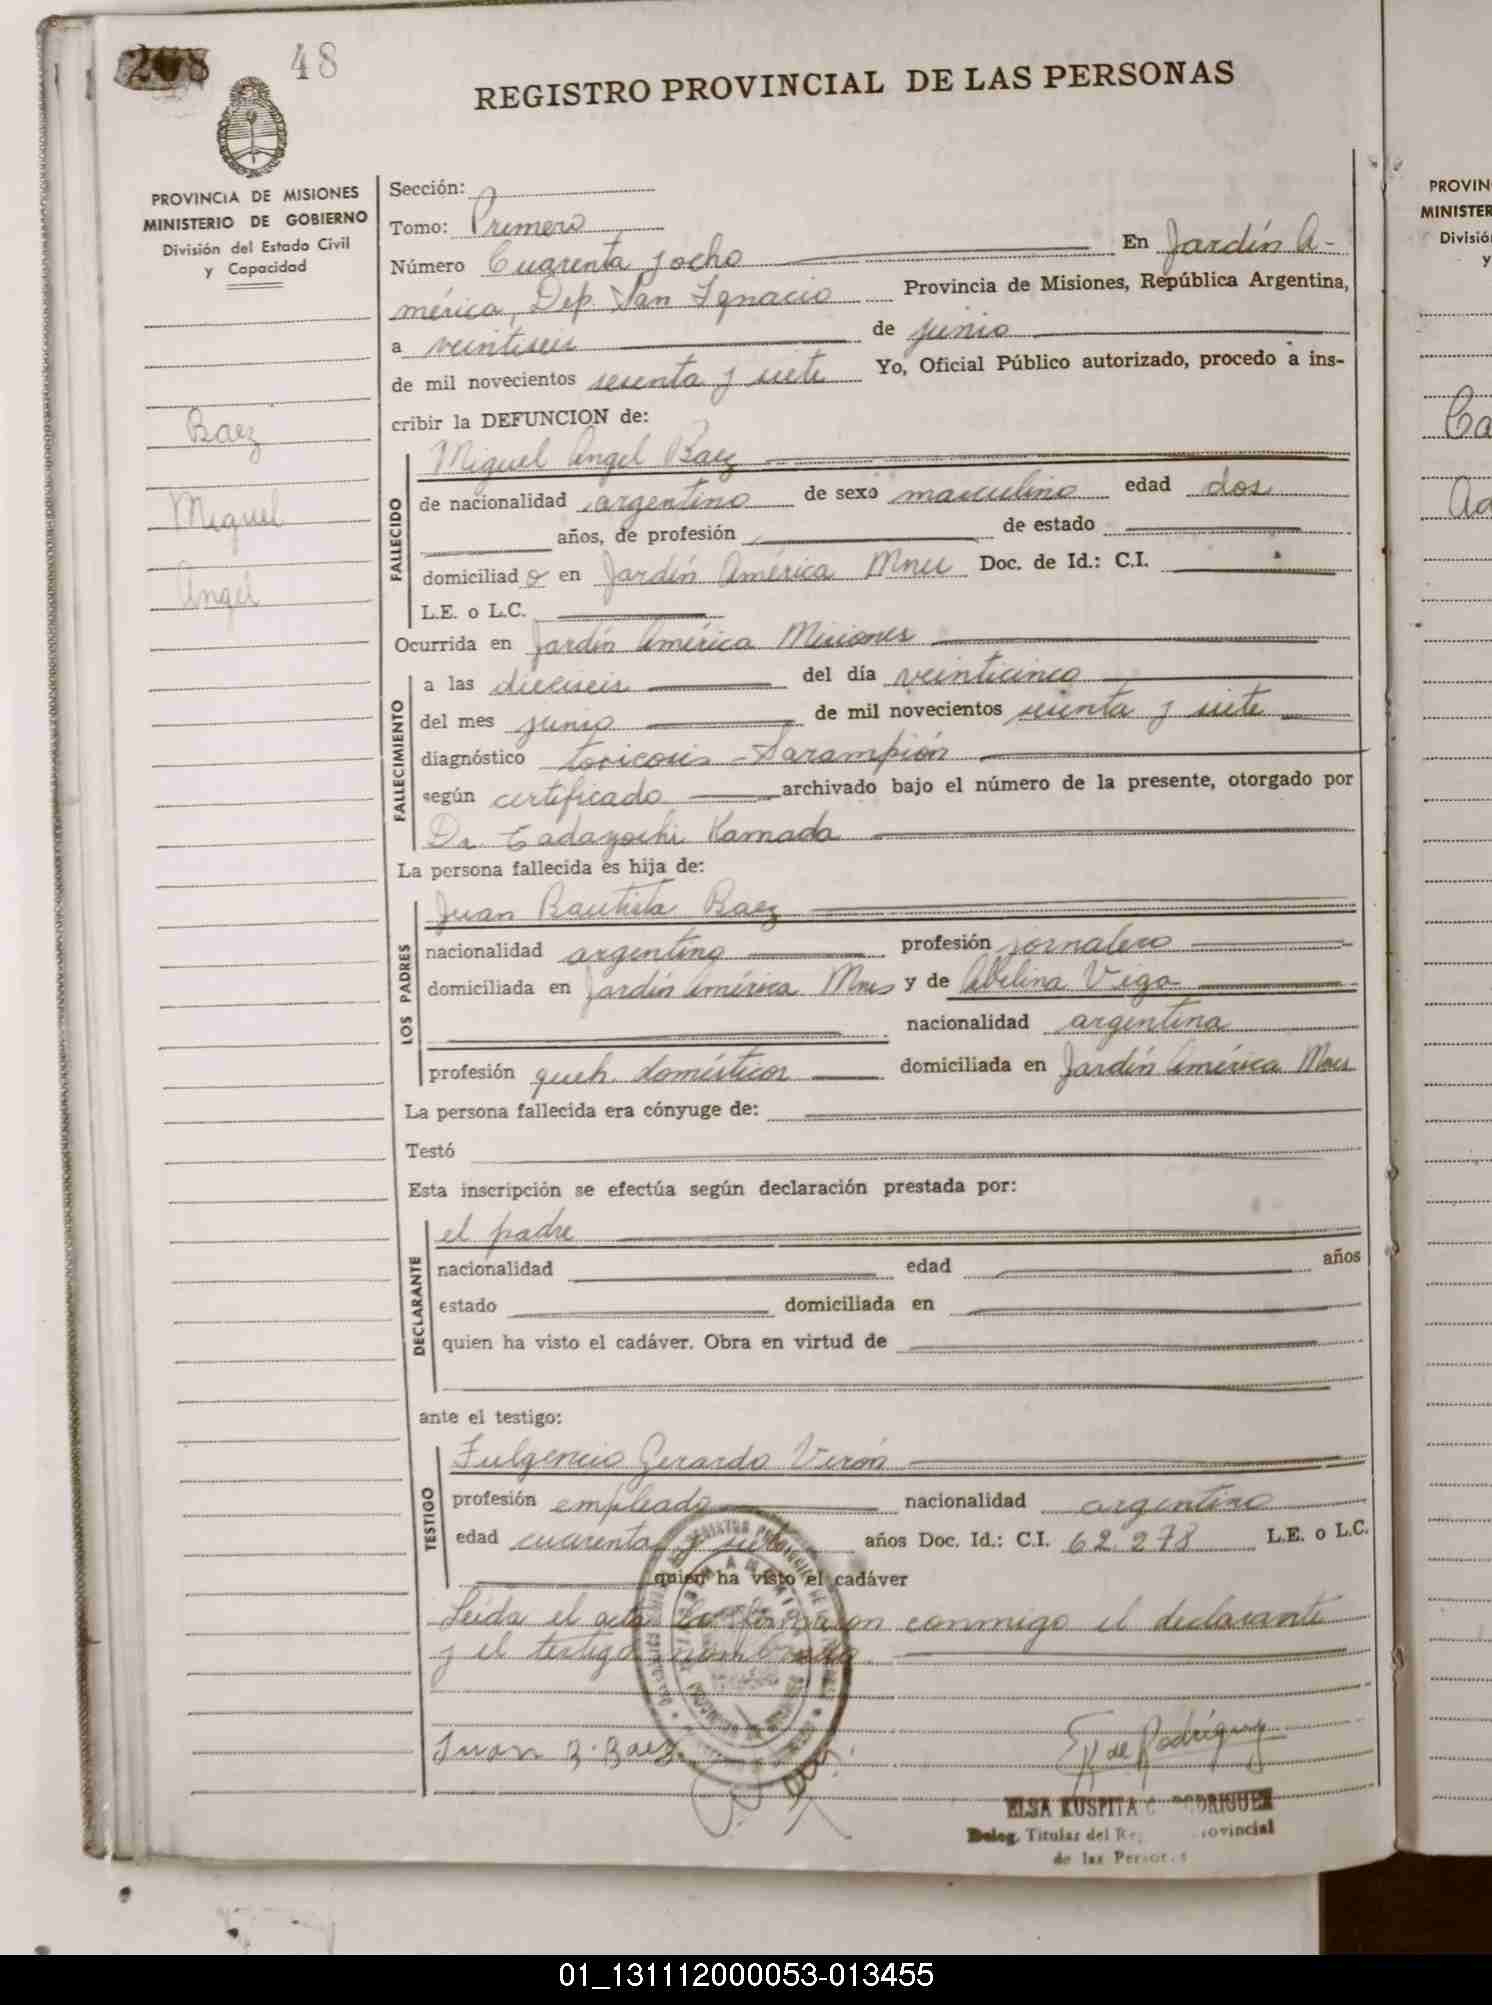 48
REGISTRO PROVINCIAL DE LAS PERSONAS
PROVINCIA DE MISIONES
MINISTERIO DE GOBIERNO
División del Estado Civil
y Capacidad
Baez
Miguel
Angel
Sección:
Tomo: Primero
Número Cuarenta y ocho En Jardín A-
mérica, Dep. San Ignacio Provincia de Misiones, República Argentina,
a veintiseis de junio
de mil novecientos sesenta y siete Yo, Oficial Público autorizado, procedo a ins-
cribir la DEFUNCION de:
FALLECIDO
Miguel Angel Baez
de nacionalidad argentino de sexo masculino edad dos
años, de profesión de estado
domiciliad o en Jardín América Mnes Doc. de Id.: C.I.
L.E. o L.C.
Ocurrida en Jardín América Misiones
FALLECIMIENTO
a las dieciseis del día veinticinco
del mes junio de mil novecientos sesenta y siete
diagnóstico toxicosis - Sarampión
según certificado archivado bajo el número de la presente, otorgado por
Dr. Tadayochi Kamada
La persona fallecida es hija de:
LOS PADRES
Juan Bautista Baez
nacionalidad argentino profesión jornalero
domiciliada en Jardín América Mnes y de Abelina Vega
nacionalidad argentina
profesión queh. domésticos domiciliada en Jardín América Mnes
La persona fallecida era cónyuge de:
Testó
Esta inscripción se efectúa según declaración prestada por:
DECLARANTE
el padre
nacionalidad edad años
estado domiciliada en
quien ha visto el cadáver. Obra en virtud de
ante el testigo:
TESTIGO
Fulgencio Gerardo Verón
profesión empleado nacionalidad argentino
edad cuarenta y años Doc. Id.: C.I. 62.278 L.E. o L.C.
quien ha visto el cadáver
Leida el acta la firman conmigo el declarante
y el testigo nombrado.
Juan B. Baez
E K de Rodríguez
ELSA KUSPITA RODRIGUEZ
Deleg. Titular del Provincial
de las Personas
PROVIN
MINISTER
Divisió
y
01_131112000053-013455